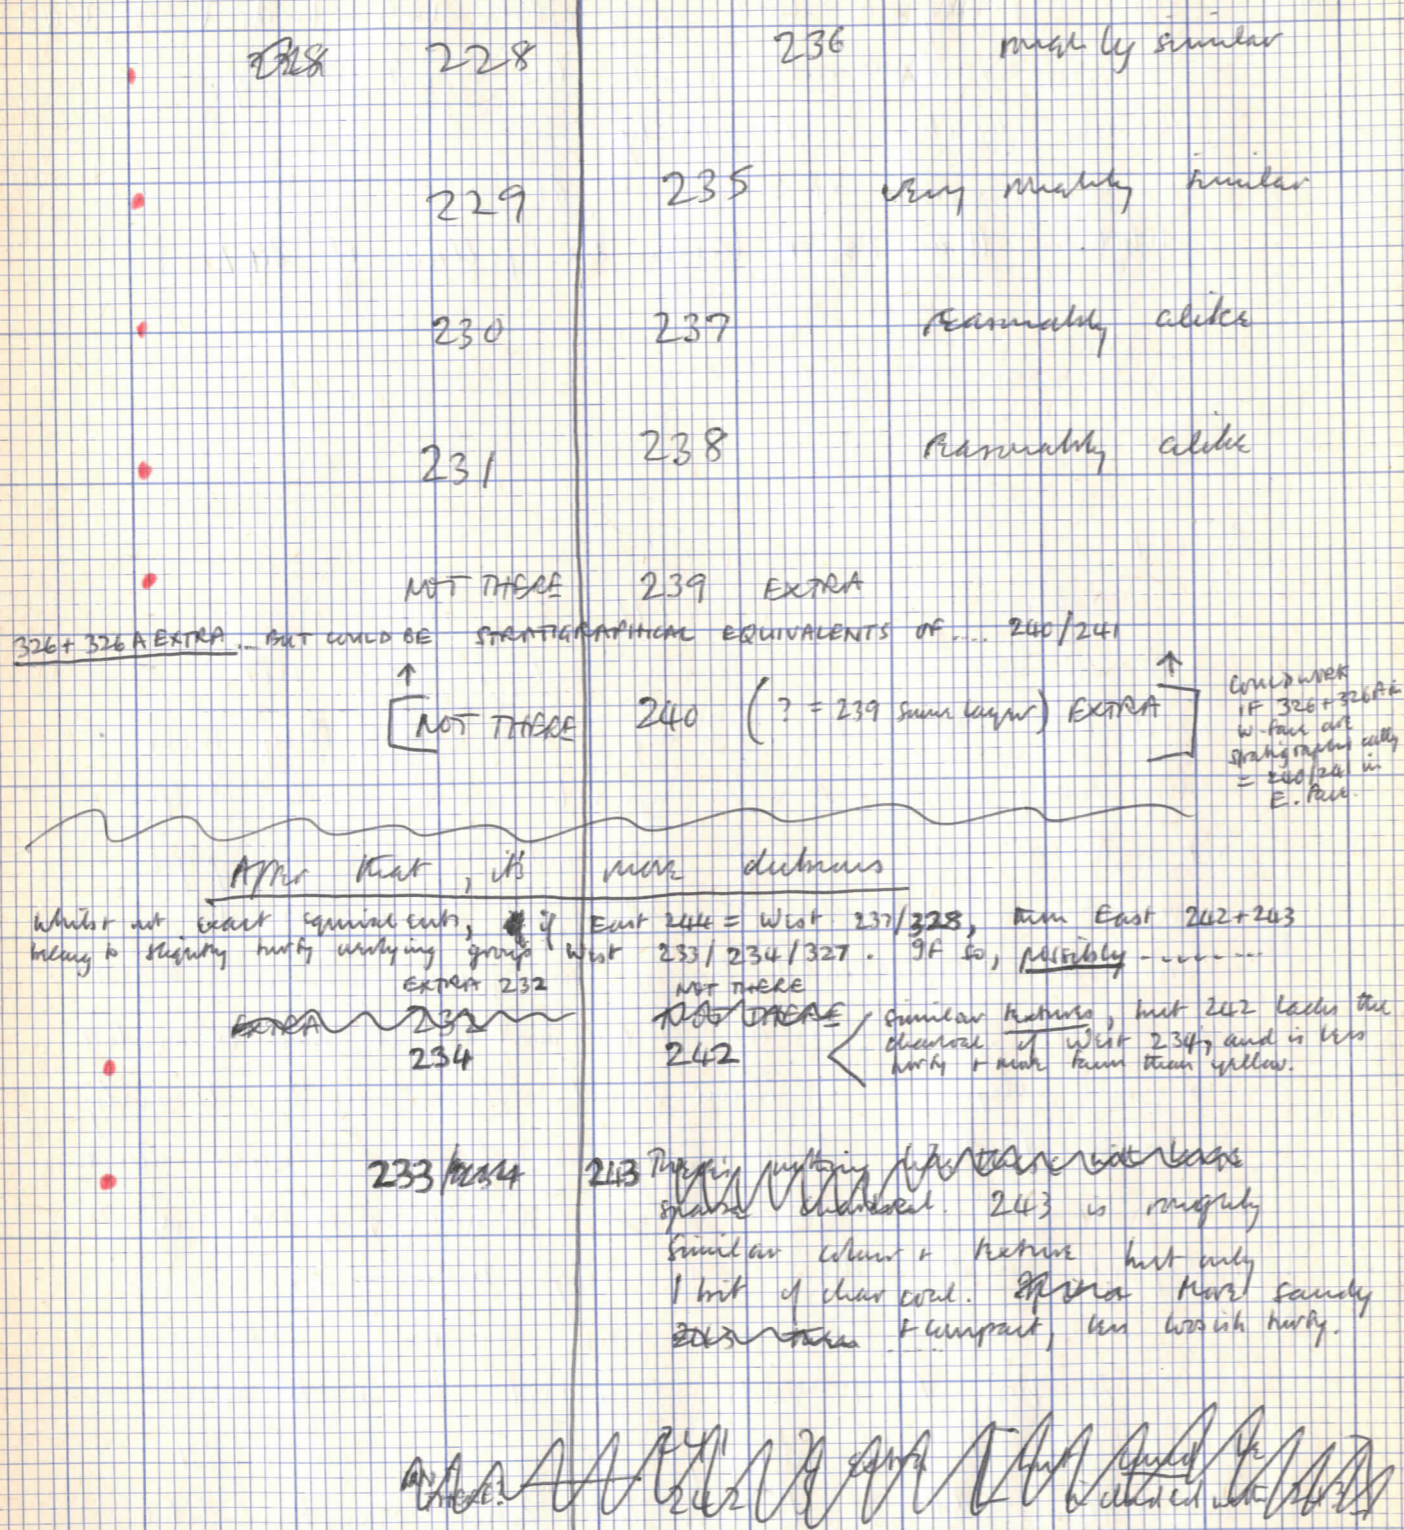 228 228 236 roughly similar
229 235 very roughly similar
230 237 Reasonably alike
231 238 Reasonably alike
NOT THERE 239 EXTRA
326 + 326A EXTRA ... BUT COULD BE STRATIGRAPHICAL EQUIVALENTS OF .... 240/241
[NOT THERE 240 (? = 239 same layer) EXTRA]
COULD WORK
IF 326 + 326A in
W-Face are
stratigraphically
= 240/241 in
E. Face.
After that, it's more dubious
Whilst not exact equivalents, if East 244 = West 237/328, then East 242 + 243
belong to slightly turfy group West 233/234/327. If so, possibly --------
EXTRA 232 NOT THERE
EXTRA 232 NOT THERE
234 242
similar textures, but 242 lacks the
charcoal of West 234, and is less
turfy + more than yellow.
233/234 243 There is nothing
sparse charcoal. 243 is roughly
similar colour + texture but only
1 bit of charcoal. More sandy
243 + compact, less turfy.
NOT THERE? 241 extra [but could be
242 included with